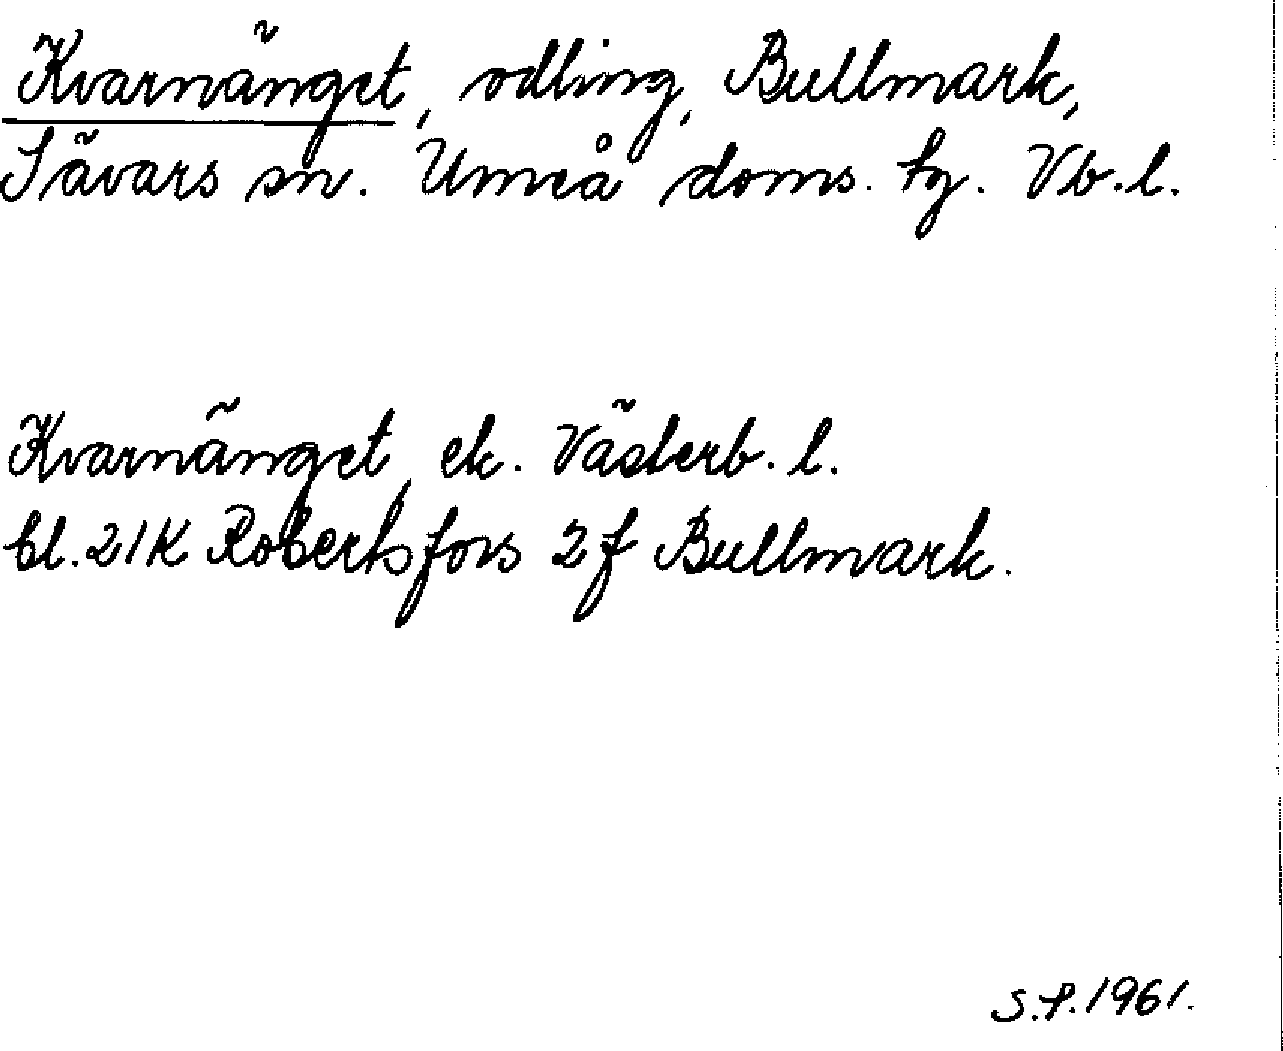 Kvarnänget, odling, Bullmark,
Sävars sn. Umeå doms. tg. Vb.l.
Kvarnänget, ek. Västerb. l.
bl. 21K Robertsfors 2f Bullmark.
S.P. 1961.